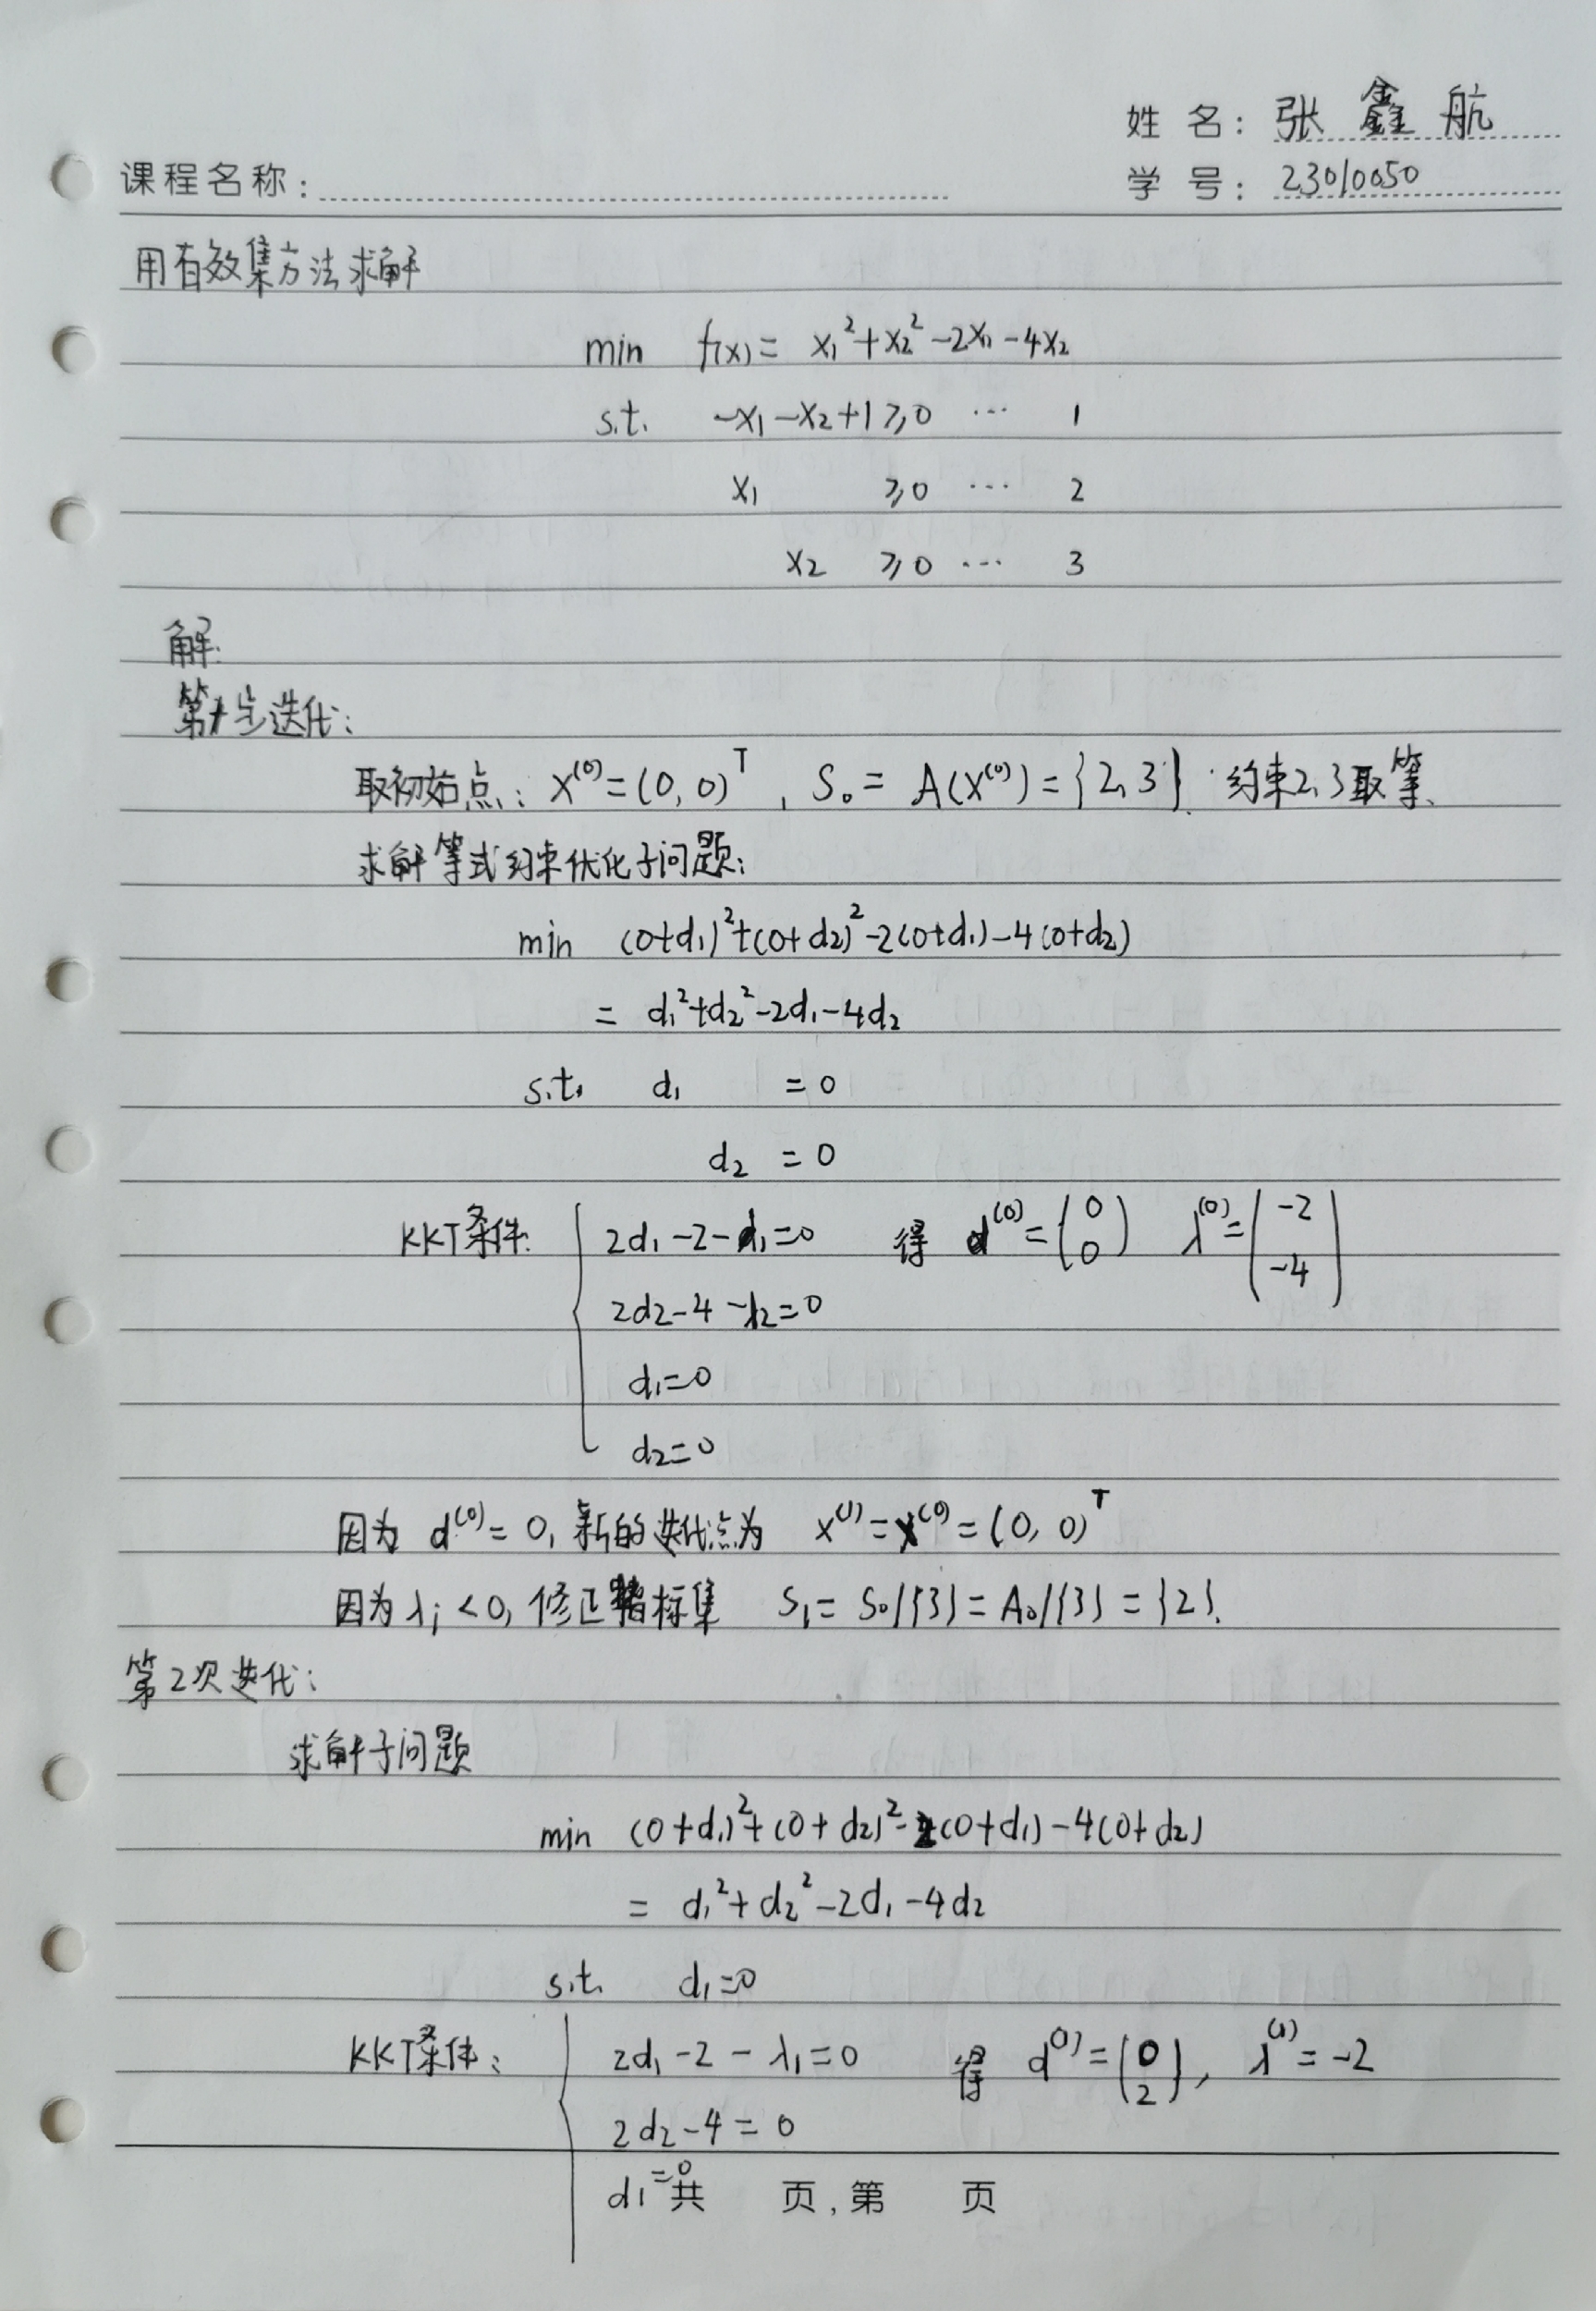 姓 名: 张鑫航
课程名称:
学 号: 23010050
用有效集方法求解
min f(x)= x₁²+x₂²-2x₁-4x₂
s.t. -x₁-x₂+1≥0 … 1
x₁ ≥0 … 2
x₂ ≥0 … 3
解:
第1步迭代:
取初始点: x⁽⁰⁾=(0,0)ᵀ, S₀= A(x⁽⁰⁾)={2,3}. 约束2,3取等.
求解等式约束优化子问题:
min (0+d₁)²+(0+d₂)²-2(0+d₁)-4(0+d₂)
= d₁²+d₂²-2d₁-4d₂
s.t. d₁ =0
d₂ =0
KKT条件: 2d₁-2-λ₁=0 得 d⁽⁰⁾=(0 0) λ⁽⁰⁾=(-2 -4)
2d₂-4-λ₂=0
d₁=0
d₂=0
因为 d⁽⁰⁾=0, 新的迭代点为 x⁽¹⁾=x⁽⁰⁾=(0,0)ᵀ
因为λⱼ<0, 修正指标集 S₁= S₀/{3}=A₀/{3}={2}.
第2次迭代:
求解子问题
min (0+d₁)²+(0+d₂)²-2(0+d₁)-4(0+d₂)
= d₁²+d₂²-2d₁-4d₂
s.t. d₁=0
KKT条件: 2d₁-2-λ₁=0 得 d⁽¹⁾=(0 2), λ⁽¹⁾=-2
2d₂-4=0
d₁=0
共 页,第 页